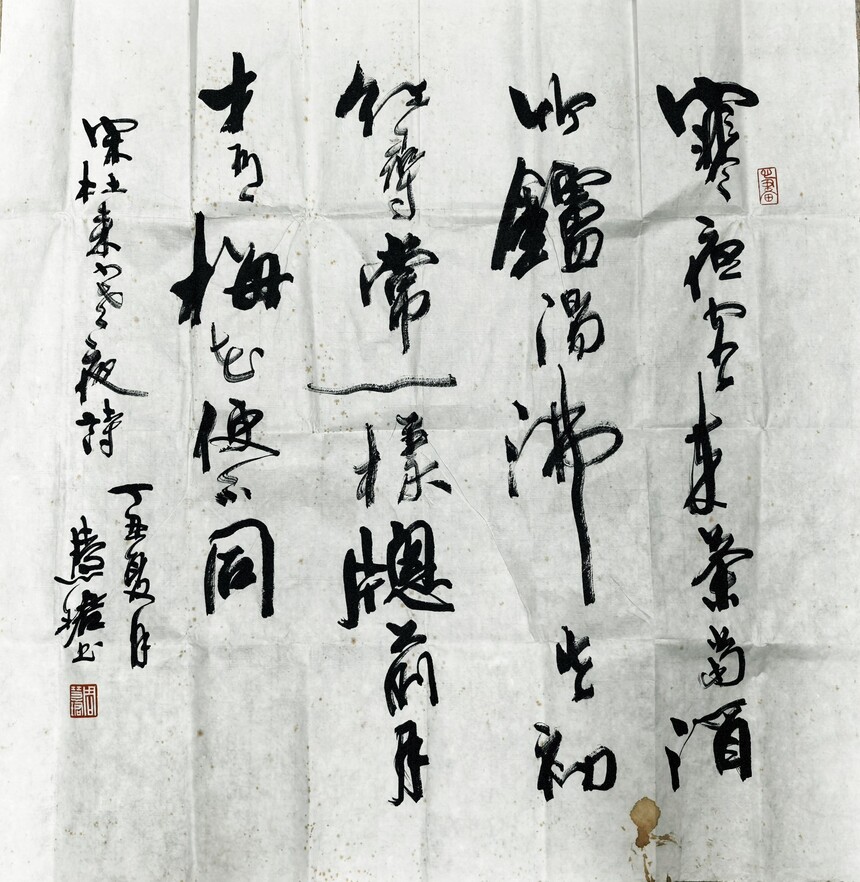 寒夜客来茶當酒
竹鑪湯沸火初
红尋常一樣牕前月
才有梅花便不同
宋杜耒寒夜詩
丁丑夏月
慧珺书
周慧珺